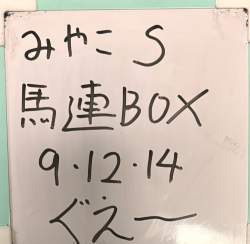 みやこ S
馬連BOX
9・12・14
ぐえ〜